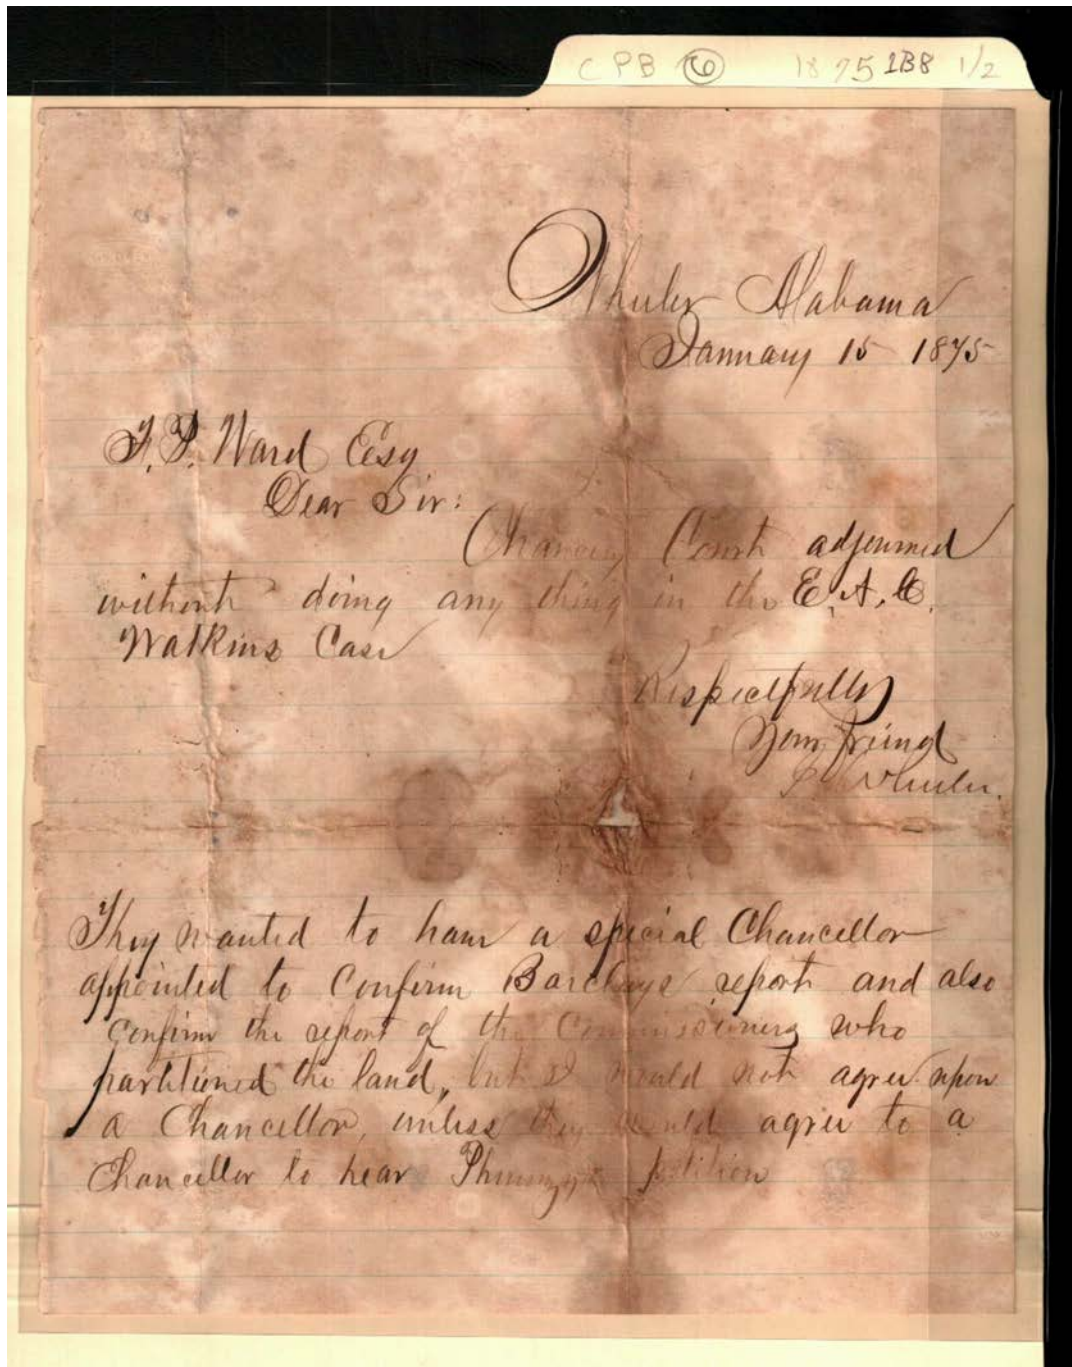 CPB 6 1875 1B8 1/2
Wheeler Alabama
January 15 1875
Ward Esq
Dear Sir:
Chancery Court adjourned
without doing any thing in the E. A. C.
Watkins Case
Respectfully
Your friend
Wheeler.
They wanted to have a special Chancellor
appointed to Confirm Barclays report and also
Confirm the report of the Commissioners who
partitioned the land, but I would not agree upon
a Chancellor, unless they would agree to a
Chancellor to hear petition